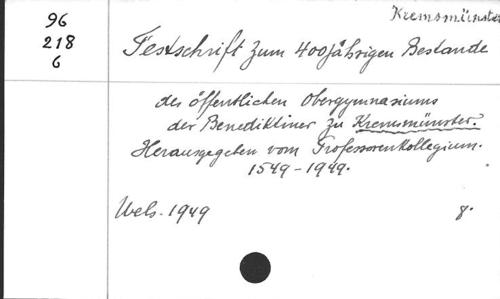 Kremsmünster
96
218
6
Festschrift zum 400jährigen Bestande
des öffentlichen Obergymnasiums
der Benediktiner zu Kremsmünster.
Herausgegeben vom Professorenkollegium.
1549-1949.
Wels. 1949
8.